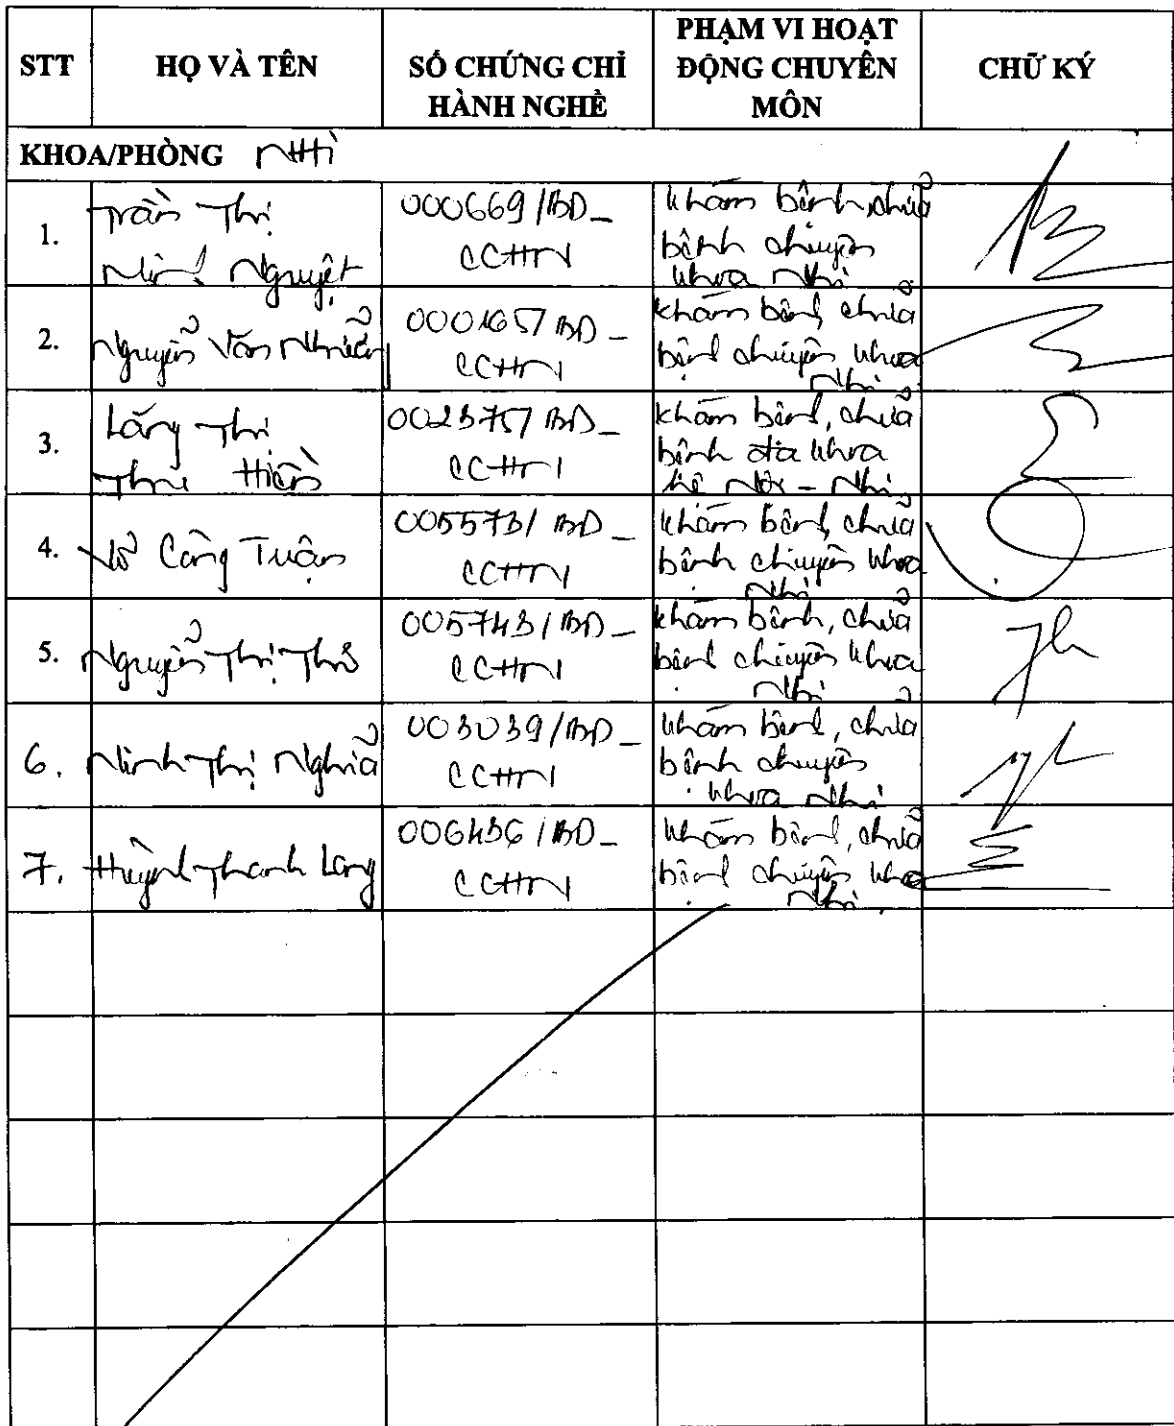 STT
HỌ VÀ TÊN
SỐ CHỨNG CHỈ
HÀNH NGHỀ
PHẠM VI HOẠT
ĐỘNG CHUYÊN
MÔN
CHỮ KÝ
KHOA/PHÒNG NHI
1.
Trần Thị
Minh Nguyệt
000669/BD_
CCHN
khám bệnh, chữa
bệnh chuyên
khoa Nhi
2.
Nguyễn Văn
BD_
CCHN
khám bệnh, chữa
bệnh chuyên khoa
Nhi
3.
Lăng Thị
Thu Hiền
002375/ BD_
CCHN
khám bệnh, chữa
bệnh đa khoa
hệ Nội - Nhi
4.
Võ Công Tuận
005573/ BD_
CCHN
khám bệnh, chữa
bệnh chuyên khoa
Nhi
5.
Nguyễn Thị
005743/BD_
CCHN
khám bệnh, chữa
bệnh chuyên khoa
Nhi
6.
Ninh Thị Nghĩa
003039/BD_
CCHN
khám bệnh, chữa
bệnh chuyên
khoa Nhi
7.
Huỳnh Thanh Long
BD_
CCHN
khám bệnh, chữa
bệnh chuyên khoa
Nhi